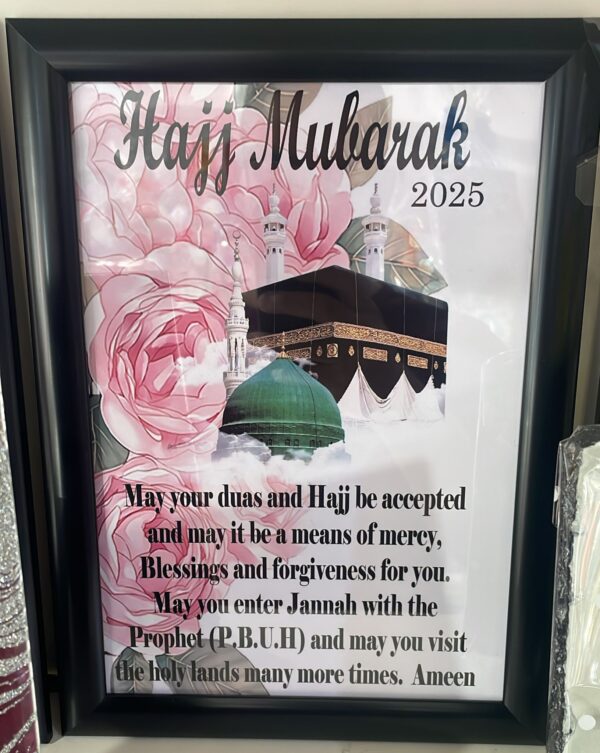 Hajj Mubarak
2025
May your duas and Hajj be accepted
and may it be a means of mercy,
Blessings and forgiveness for you.
May you enter Jannah with the
Prophet (P.B.U.H) and may you visit
the holy lands many more times. Ameen